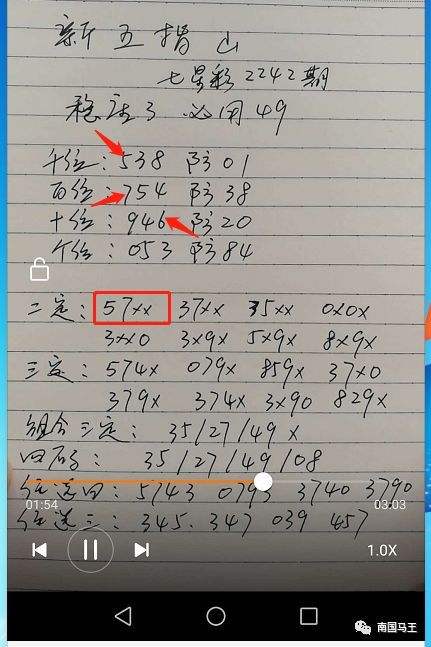 新五指山
七星彩2242期
稳注3 必用49
千位:538 防01
百位:754 防38
十位:946 防20
个位:053 防84
二定:57xx 37xx 35xx 0x0x
3xx0 3x9x 5x9x 8x9x
三定:574x 079x 859x 37x0
379x 374x 3x90 829x
组合三定: 35/27/49 x
四码: 35/27/49/08
任选四:5743 0793 3740 3790
01:54
03:03
任选三:345. 347 039 457
1.0X
南国马王